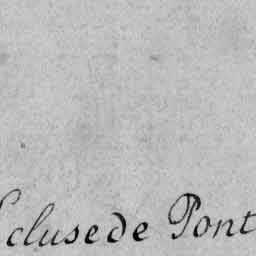 Ecluse de Pont